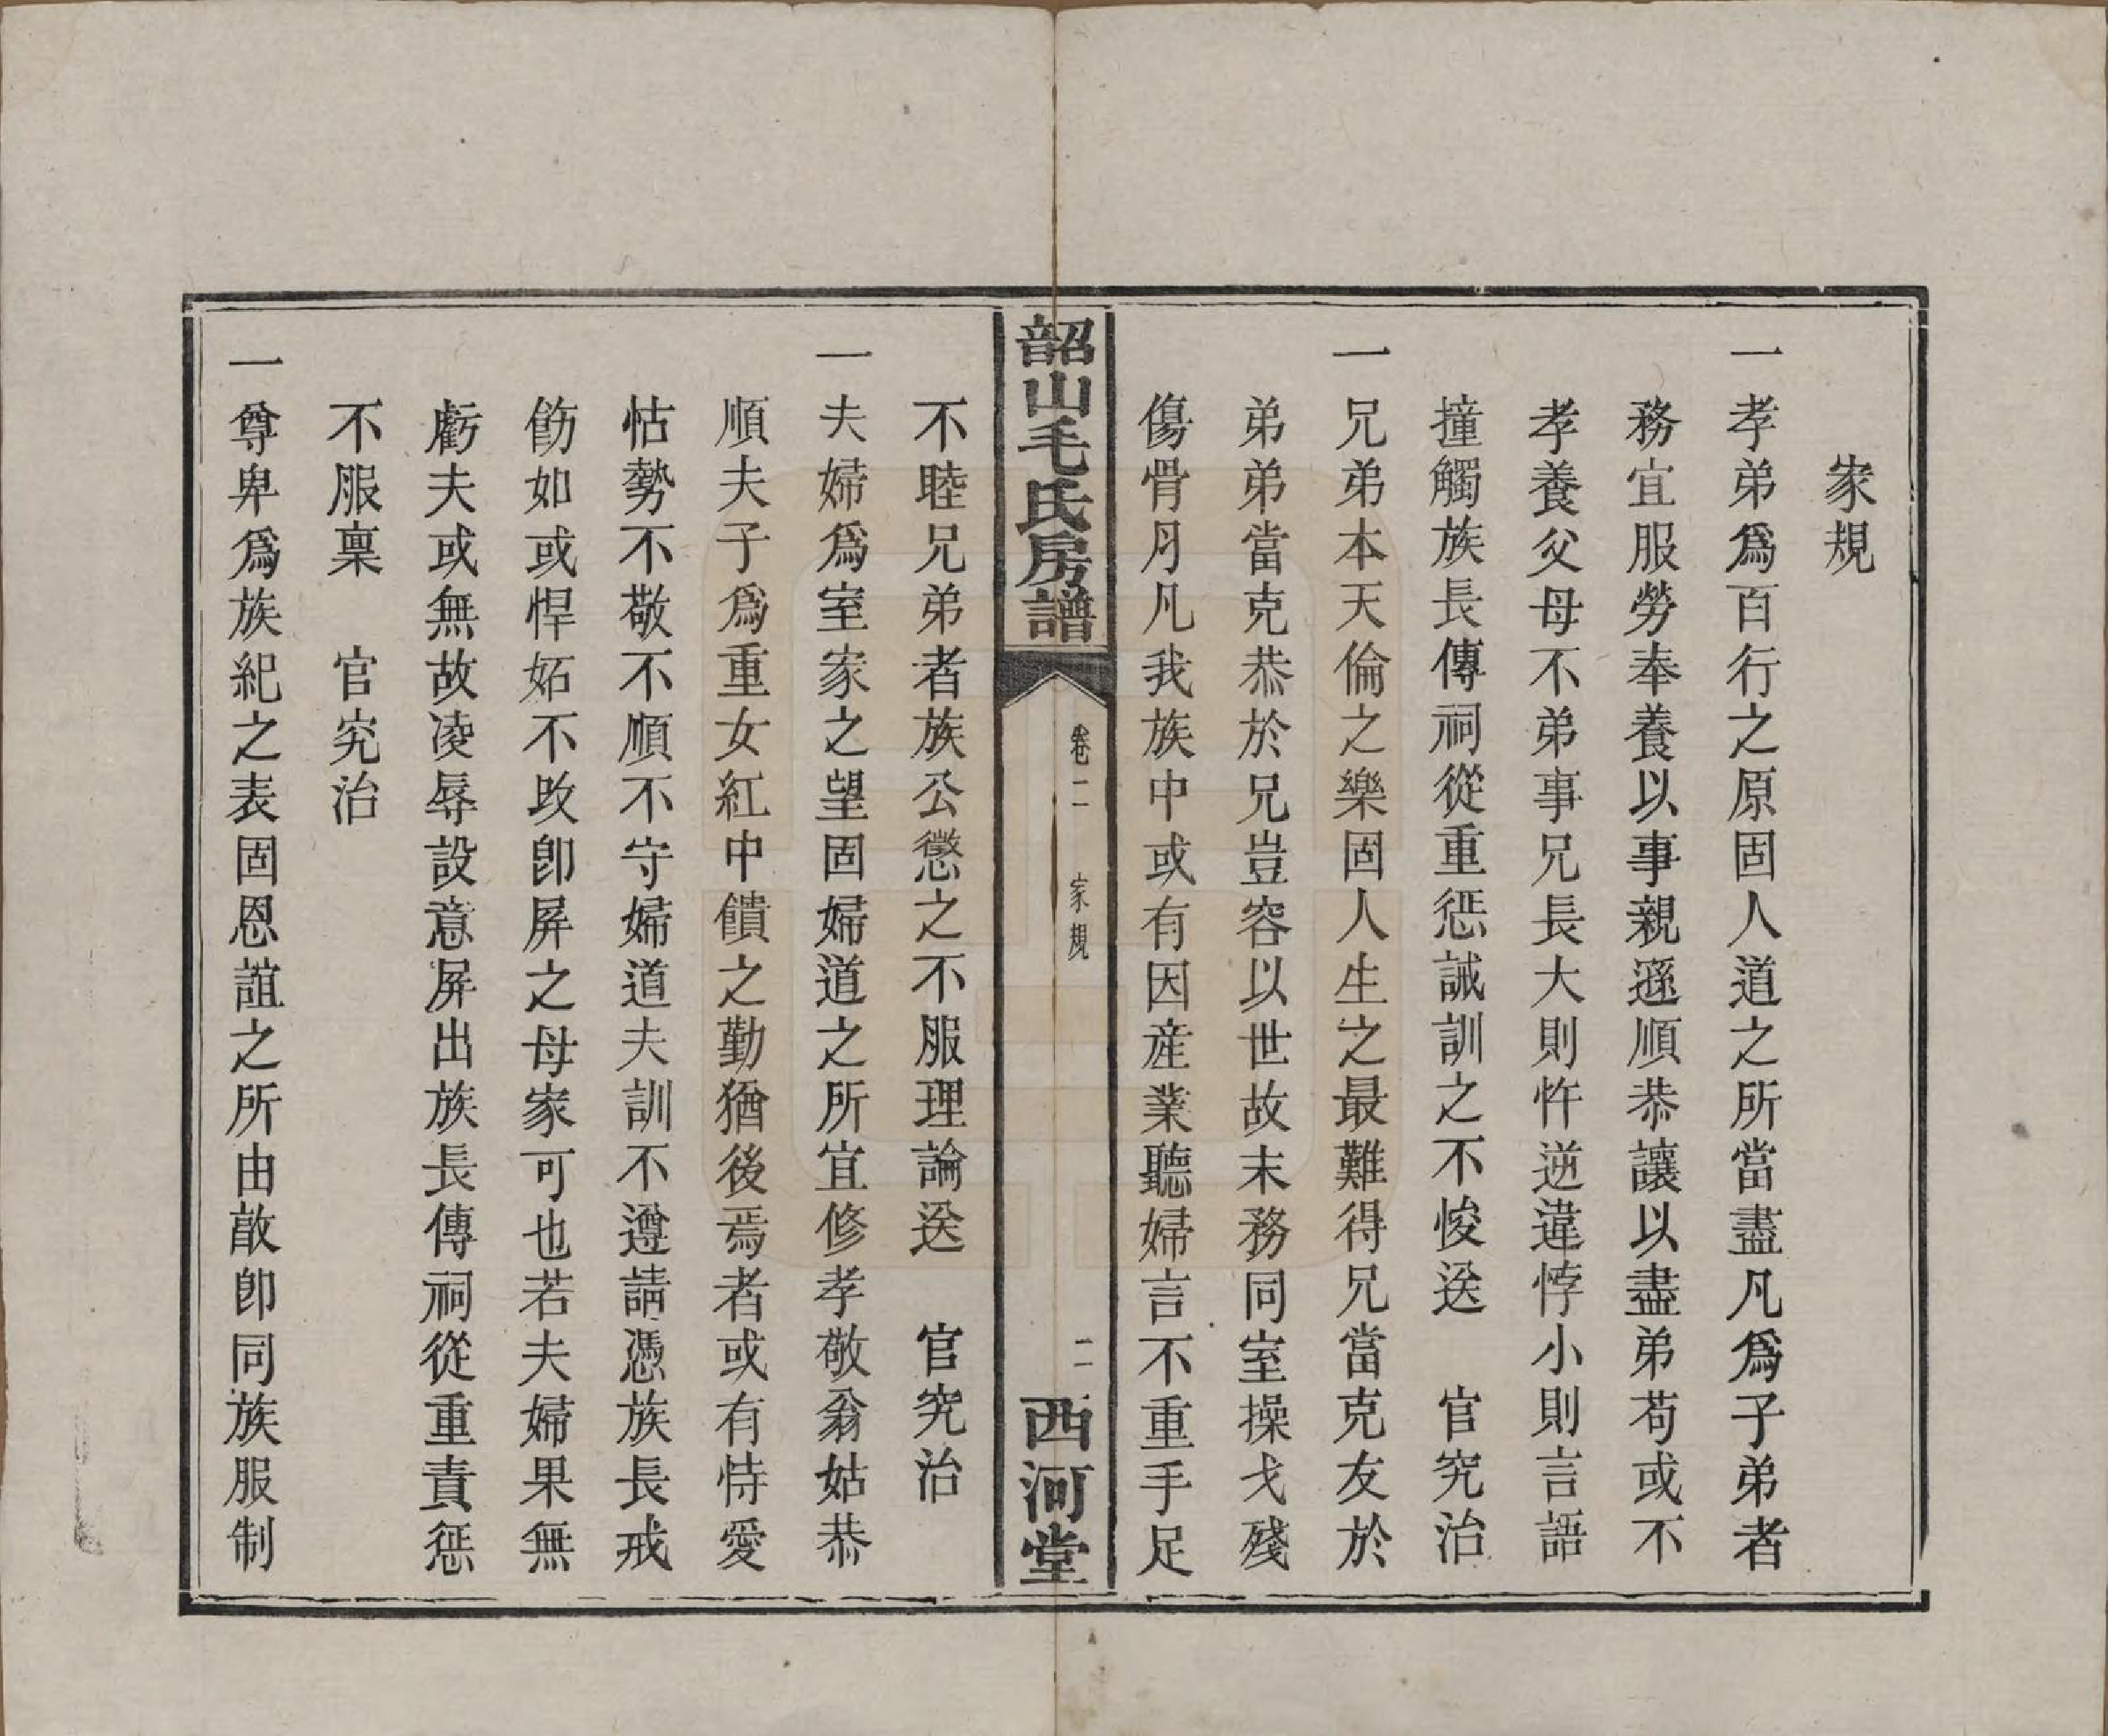 家規
一孝弟爲百行之原固人道之所當盡凡爲子弟者
務宜服勞奉養以事親遜順恭讓以盡弟苟或不
孝養父母不弟事兄長大則忤逆違悖小則言語
撞觸族長傳祠從重惩誡訓之不悛送　官究治
一兄弟本天倫之樂固人生之最難得兄當克友於
弟弟當克恭於兄豈容以世故末務同室操戈殘
傷骨月凡我族中或有因產業聽婦言不重手足
韶山毛氏房譜
卷二
家規
二
西河堂
不睦兄弟者族公懲之不服理論送　官究治
一夫婦爲室家之望固婦道之所宜修孝敬翁姑恭
順夫子爲重女紅中饋之勤猶後焉者或有恃愛
怙勢不敬不順不守婦道夫訓不遵請憑族長戒
飭如或悍妬不改卽屏之母家可也若夫婦果無
虧夫或無故凌辱設意屏出族長傳祠從重責惩
不服稟　官究治
一尊卑爲族紀之表固恩誼之所由敢卽同族服制